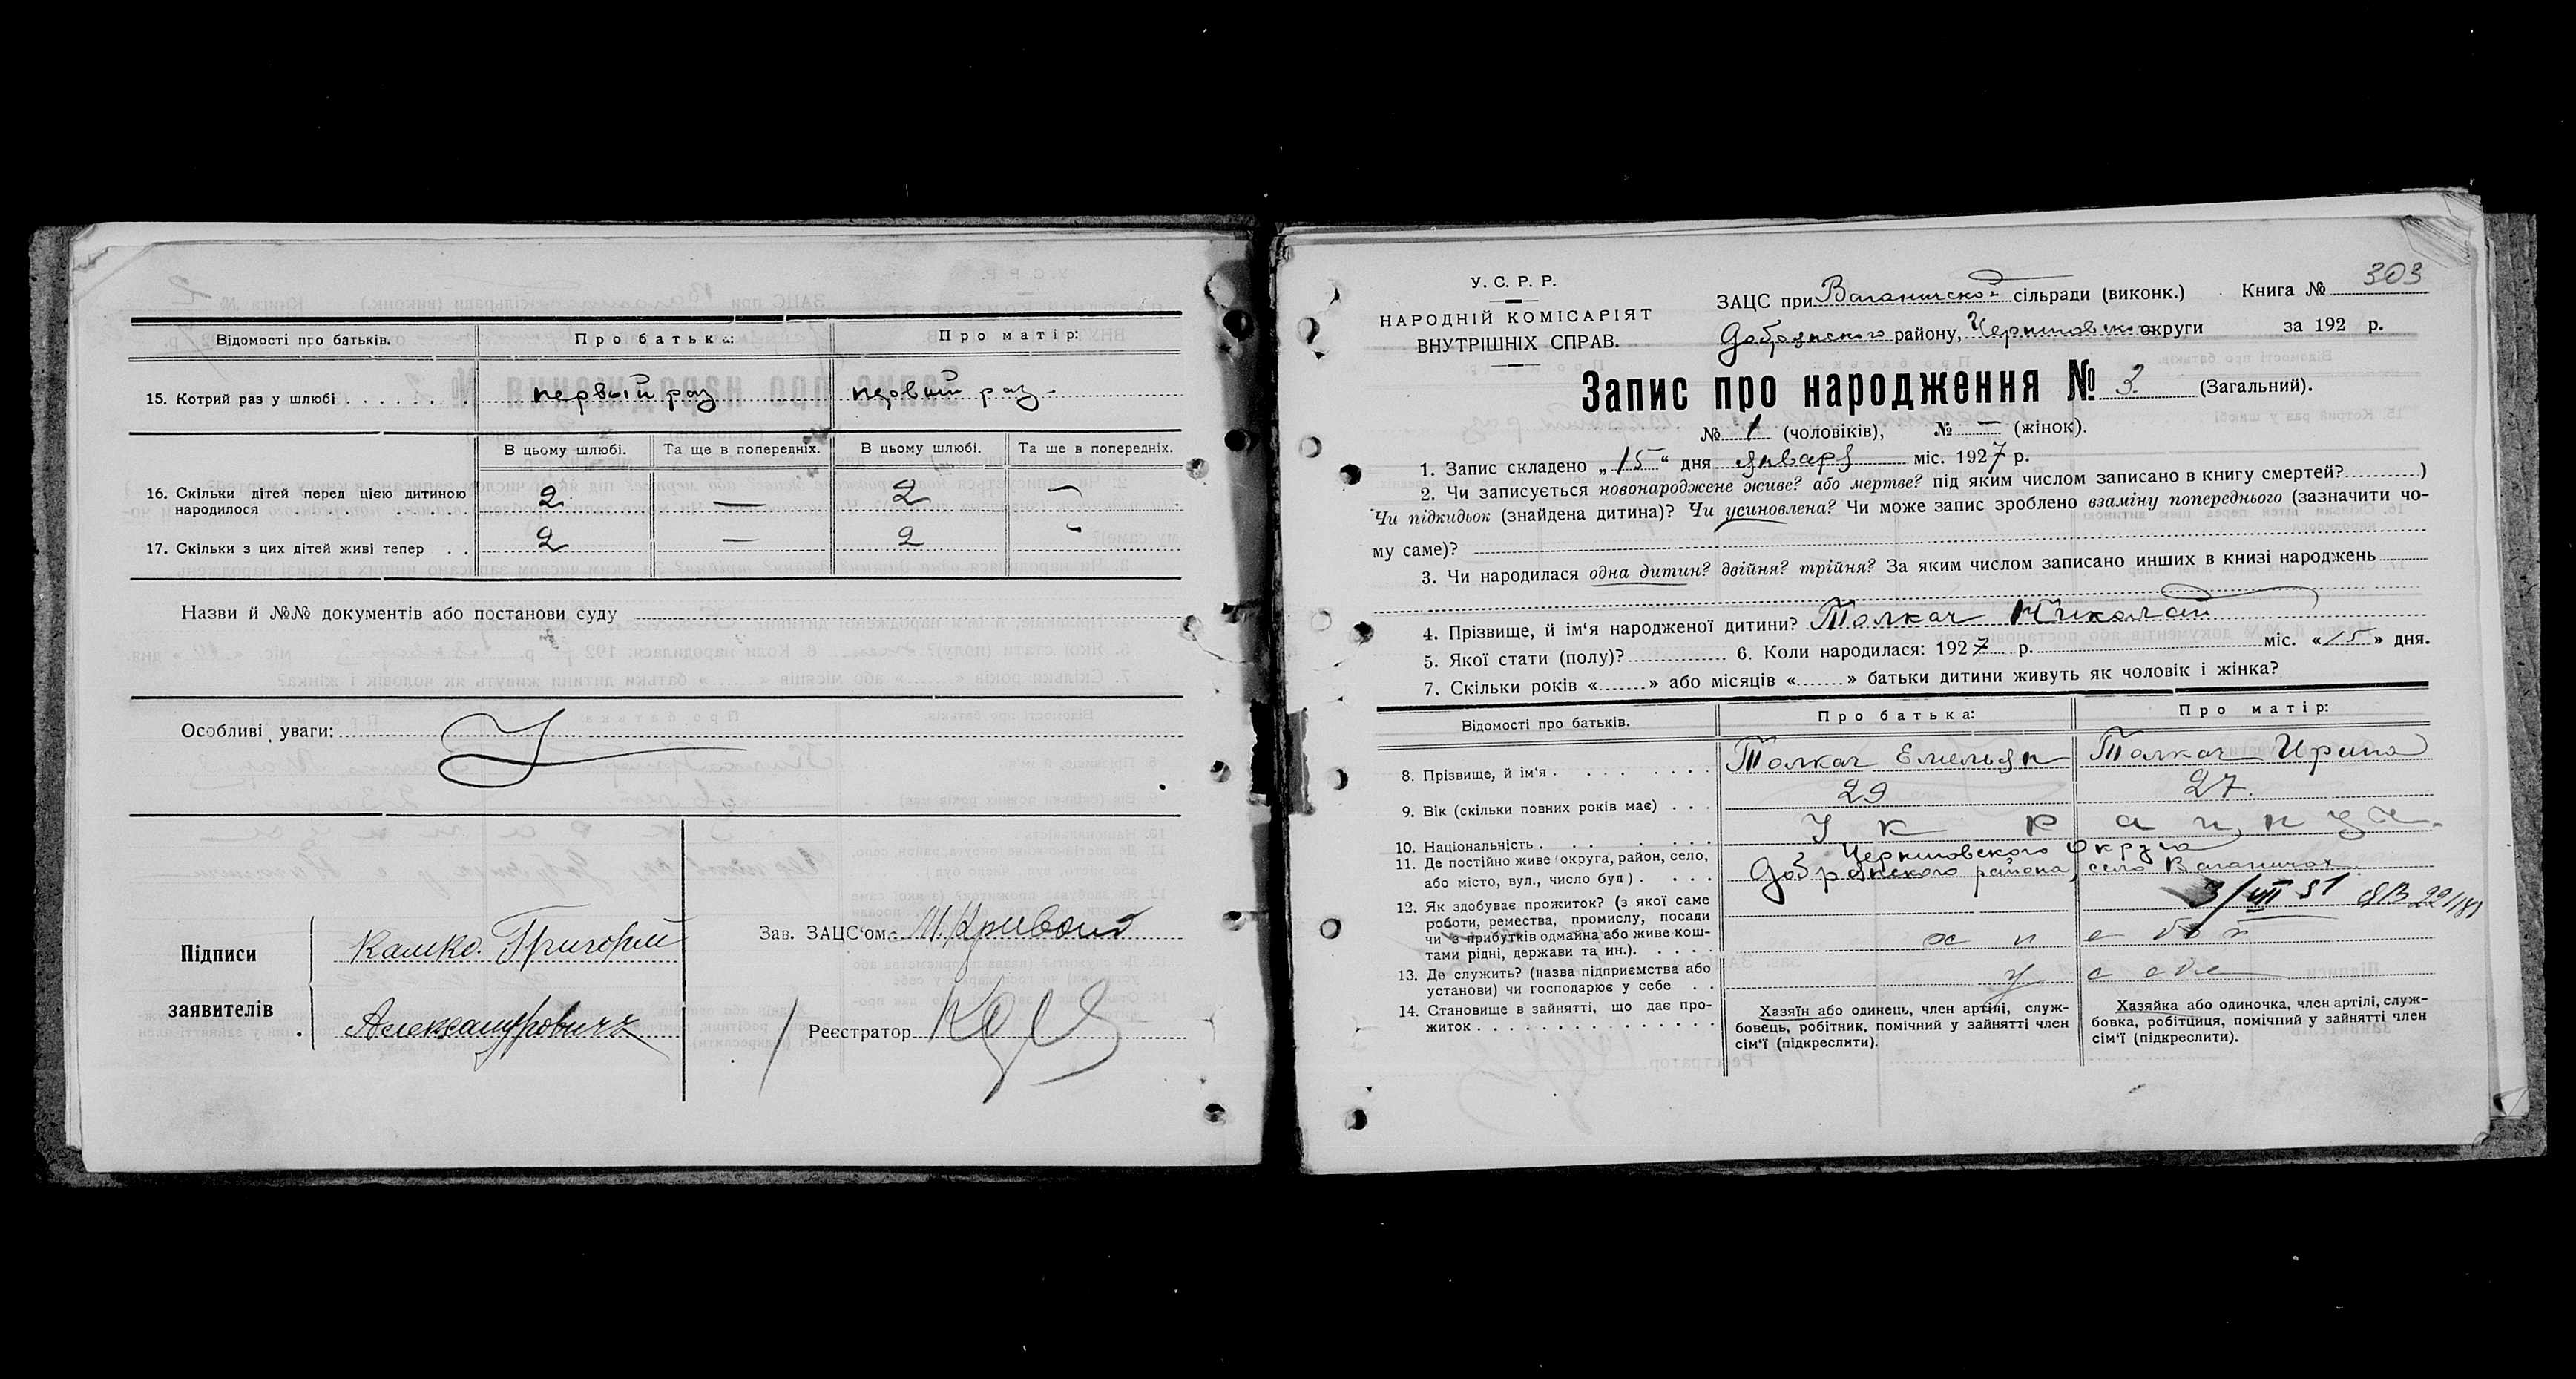 Відомості про батьків.
Про батька:
Про матір:
15. Котрий раз у шлюбі . . . . . .
первый раз
первый раз.
В цьому шлюбі.
Та ще в попередніх.
В цьому шлюбі.
Та ще в попередніх.
16. Скільки дітей перед цією дитиною народилося . . . . . . . . . .
2
—
2
—
17. Скільки з цих дітей живі тепер . .
2
—
2
Назви й №№ документів або постанови суду
Особливі уваги:
Підписи
заявителів
Камко. Григорий
Александрович
Зав. ЗАЦС'ом
М. Кривой
Реєстратор
У. С. Р. Р.
НАРОДНІЙ КОМІСАРІЯТ
ВНУТРІШНІХ СПРАВ.
ЗАЦС при Ваганичской сільради (виконк.)
Книга №
303
Добрянского району, Черниговского округи
за 192 р.
Запис про народження № 3 (Загальний).
№ 1 (чоловіків), № — (жінок).
1. Запис складено „15“ дня января міс. 1927 р.
2. Чи записується новонароджене живе? або мертве? під яким числом записано в книгу смертей? )
Чи підкидьок (знайдена дитина)? Чи усиновлена? Чи може запис зроблено взаміну попереднього (зазначити чо-
му саме)?
3. Чи народилася одна дитин? двійня? трійня? За яким числом записано инших в книзі народжень
4. Прізвище, й ім'я народженої дитини? Толкач Николай
5. Якої стати (полу)? 6. Коли народилася: 1927 р. міс. «15» дня.
7. Скільки років «......» або місяців «......» батьки дитини живуть як чоловік і жінка?
Відомості про батьків.
Про батька:
Про матір:
8. Прізвище, й ім'я . . . . . . . .
Толкач Емельян
Толкач Ирина
9. Вік (скільки повних років має) . . .
29
27.
10. Національність . . . . . . . .
Украинцы.
11. Де постійно живе (округа, район, село,
або місто, вул., число буд.) . . . .
Черниговского Округа
Добрянского района, село Ваганичах
12. Як здобуває прожиток? (з якої саме
роботи, ремества, промислу, посади
чи з прибутків одмайна або живе кош-
тами рідні, держави та ин.). . . . .
3/VIII 51
хлебоп
13. Де служить? (назва підприємства або
установи) чи господарює у себе . .
у себе
14. Становище в зайнятті, що дає про-
житок . . . . . . . . . . . . . . .
Хазяїн або одинець, член артілі, служ-
бовець, робітник, помічний у зайнятті член
сім'ї (підкреслити).
Хазяйка або одиночка, член артілі, служ-
бовка, робітциця, помічний у зайнятті член
сім'ї (підкреслити).